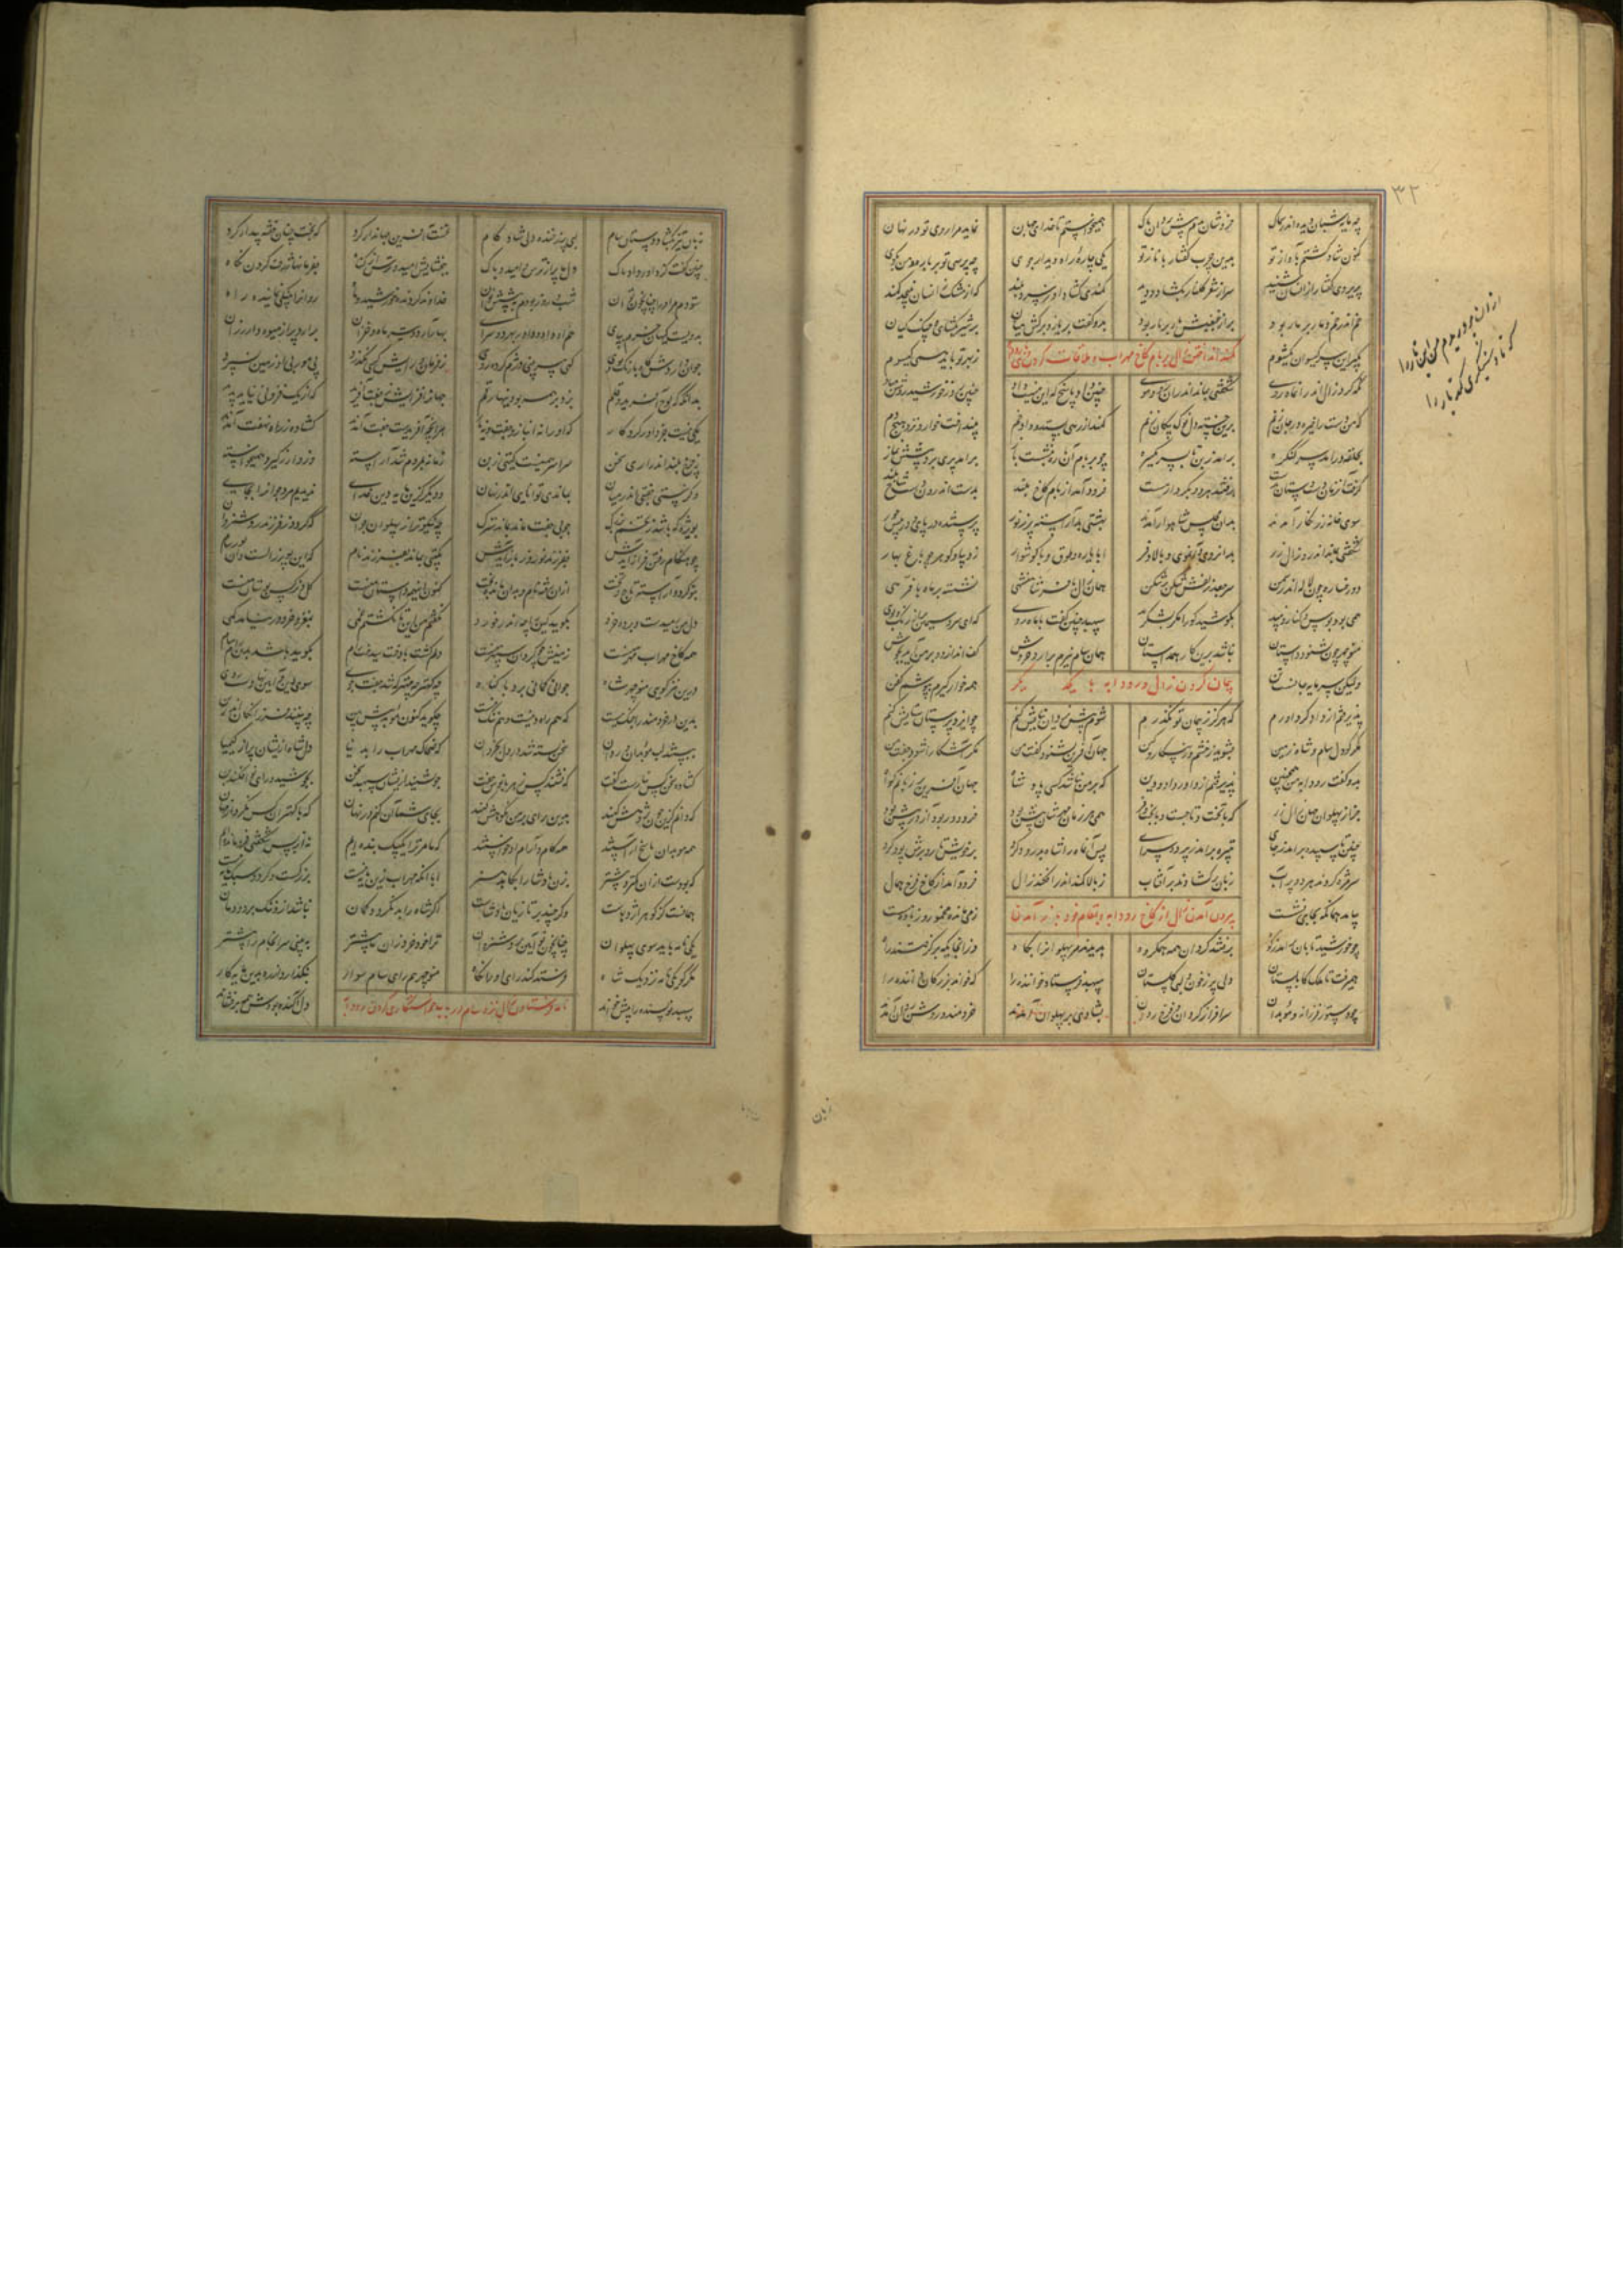 ۳۲
چه مایه شبان دیده اندر سماک خروشان بدم پیش یزدان پاک همی خواستم تا خدای جهان نماید مرا روی تو در نهان
کنون شاد گشتم بآواز تو بدین چرب گفتار با ناز تو یکی چاره راه دیدار جوی چه پرسی تو بر باره و من بکوی
پریروی گفتار ازانسان شنید سر از شعر گلنار بگشاد زود کمندی گشاد او ز سرو بلند که از مشک زانسان نپیچد کمند
خم اندر خم و مار بر مار بود بران غبغبش نار بر نار بود بدو گفت بر یاز و برکش میان بر شیر بگشای و چنگ کیان
بگیر این سر گیسو از یکسویم ز بهر تو باید همی گیسویم
کمند انداختن زال بر بام کاخ مهراب و ملاقات کردن
نگه کرد زال اندر آن ماه روی شگفتی بماند اندران روی و موی چنین داد پاسخ که این نیست داد چنین روز خورشید روشن مباد
که من دست را خیره در جان زنم برین خسته دل نوک پیکان زنم کمند از رهی بستد و داد خم بیفکند خوار و نزد هیچ دم
بحلقه درآمد سر کنگره برآمد ز بن تا بسر یکسره چو بر بام آن باره بنشست باز برآمد پری روی و بردش نماز
گرفت آن زمان دست دستان بدست برفتند هر دو بکردار مست فرود آمد از بام کاخ بلند بدست اندرون شاخ بلند
سوی خانه زرنگار آمدند بدان مجلس شاهوار آمدند بهشتی بد آراسته پر ز نور پرستنده بر پای و در پیش حور
شگفتی بماند اندرو زال زر بدان روی و آن موی و بالا و فر ابا یاره و طوق و با گوشوار ز دیبا و گوهر چو باغ بهار
دو رخساره چون لاله اندر چمن سر جعد زلفش شکن بر شکن همان زال با فر شاهنشهی نشسته بر ماه با فرهی
همی بود بوس و کنار و نبید مگر بشکرد سپهبد چنین گفت با ماه روی که ای سرو سیمین رنگ و بوی
منوچهر چون بشنود داستان نباشد برین کار همداستان همان سام نیرم برآرد خروش کف اندازد و بر من آید بجوش
ولیکن سر مایه جانست و تن همه خوار گیرم بپوشم کفن
پیمان کردن زال و رودابه با یکدیگر
پذیرفتم از دادگر داورم که هرگز ز پیمان تو نگذرم شوم پیش یزدان نیایش کنم چو ایزد پرستان ستایش کنم
مگر کو دل سام و شاه زمین بشوید ز خشم و ز پیکار و کین جهان آفرین بشنود گفت من مگر آشکارا شوی جفت من
بدو گفت رودابه من همچنین پذیرفتم از داور داد و دین که بر من نباشد کسی پادشا جهان آفرین بر زبانم گوا
جز از پهلوان جهان زال زر که با تخت و تاجست و با زیب و فر همی هر زمان مهرشان بیش بود خرد دور بود آرزو پیش بود
چنین تا سپیده برآمد ز جای تبیره برآمد ز پرده سرای پس آن ماه را شاه پدرود کرد بر خویش تار و برش پود کرد
سر مژه کردند هر دو پر آب زبان برگشادند بر آفتاب ز بالا کمند اندر افکند زال فرود آمد از کاخ فرخ همال
بیامد همانگه بجای نشست ز می مانده مخمور وز باده مست
بیرون آمدن زال از کاخ رودابه و بمقام خود باز آمدن
چو خورشید تابان برآمد ز کوه برفتند گردان همه همگروه بدیدند مر پهلوانرا پگاه وزانجایگه برگرفتند راه
همیرفت تا ملک کابلستان دلی پر ز خون و لبی گلستان سپهبد فرستاد خواننده را که خواند بزرگان داننده را
چو دستور فرزانه و موبدان سرافراز گردان و فرخ ردان بشادی بر پهلوان آمدند خردمند و روشن روان آمدند
از ان پروریدم من این تار را
که تا دستگیری کند یار را
زبان تیز بگشاد دستان سام لبی پر ز خنده دلی شاد کام نخست آفرین جهاندار کرد که بخت چنان خفته بیدار کرد
چنین گفت کز داور داد و پاک دل ما پر از ترس و امید و باک ببخشایش امید و ترس از گناه بفرمانها ژرف کردن نگاه
ستودن مر او را چنانچون توان شب و روز بودن بپیشش نوان خداوند گردنده خورشید و ماه روانرا بنیکی نماینده راه
بدویست کیهان خرم بپای هم او داد و داور بهر دو سرای بهار آرد و تیر ماه و خزان برآرد پر از میوه دار رزان
جوان داردش گاه با رنگ و بوی گهی پیر بینی دژم کرده روی ز فرمان و رایش کسی نگذرد پی مور بی او زمین نسپرد
بدانگه که لوح آفرید و قلم بزد بر همه بودنیها رقم جهانرا فزایش ز جفت آفرید که از یک فزونی نیاید پدید
یکی نیست جز داور کردگار که او را نه انباز و جفت و نه یار هر آنچ آفریدست جفت آفرید گشاده ز راز نهفت آفرید
ز چرخ بلند اندر آری سخن سراسر همینست گیتی ز بن زمانه بمردم شد آراسته وزو ارز گیرد همی خواسته
وگر نیستی جفت اندر میان بماندی توانایی اندر نهان و دیگر ز دین خدای ندیدیم مرد جوانرا بجای
بویژه که باشد ز تخم بزرگ چو بی جفت ماند بماند سترگ چه نیکوتر از پهلوان جوان که گردد ز فرزند روشن روان
چو هنگام رفتن فراز آیدش بفرزند نوروز باز آیدش بگیتی بماند ز فرزند نام که این پور زالست و آن پور سام
بدو گردد آراسته تاج و تخت ازان رفته نام و بدان مانده بخت کنون این همه داستان منست گل و نرگس بوستان منست
دل از من رمیدست و برده خرد بگویید کین را چه اندر خورد نگفتم من این تا نگشتم غمی بمغز و خرد در نیامد کمی
همه کاخ مهراب مهر منست زمینش چو گردان سپهر منست دلم گشت با دخت سیندخت رام بگویید باشد بدین رام سام
درین نیز گوی منوچهر شاه جوانی گمانی برد یا گناه چه کهتر چه مهتر که شد جفت جوی سوی دین و آیین نهادست روی
بدین در خردمند را جنگ نیست که هم راه دینست و هم ننگ نیست چگوید کنون موبد پیش بین چه بینند فرزانگان اندرین
ببستند لب موبدان و ردان سخن بسته شد بر دل بخردان که ضحاک مهراب را بد نیا دل شاه ازیشان پر از کیمیا
گشاده سخن کس نیارست گفت که نشنید کس زهر با نوش جفت چو نشنید ازیشان سپهبد سخن بجوشید و رای نو افکند بن
که دانم که چون این پژوهش کنند بدین رای بر من نکوهش کنند بجای شما آن کنم در نهان که با کهتران کس نکرد از مهان
همه موبدان پاسخ آراستند همه کام و آرام او خواستند که ما مر ترا یک بیک بنده ایم نه از بس شگفتی فرومانده ایم
که بودست ازان کمتر و بیشتر بزن پادشا را نکاهد هنر ابا آنکه مهراب زین پایه نیست بزرگست و گرد و سبک مایه نیست
همانست کز گوهر اژدهاست وگر چند بر تازیان پادشاست اگر شاه را بد نگردد گمان نباشد ازو ننگ بر دودمان
یکی نامه باید سوی پهلوان چنانچون تو روشن روان ترا خود خرد زان ما بیشتر ببینی سرانجام را پیشتر
مگر کو یکی نامه نزدیک شاه فرستد کند رای او را نگاه منوچهر هم رای سام سوار بدین مایه کار
سپهبد نویسنده را پیش خواند دل آگنده بودش همه برفشاند
نامه فرستادن زال نزد سام